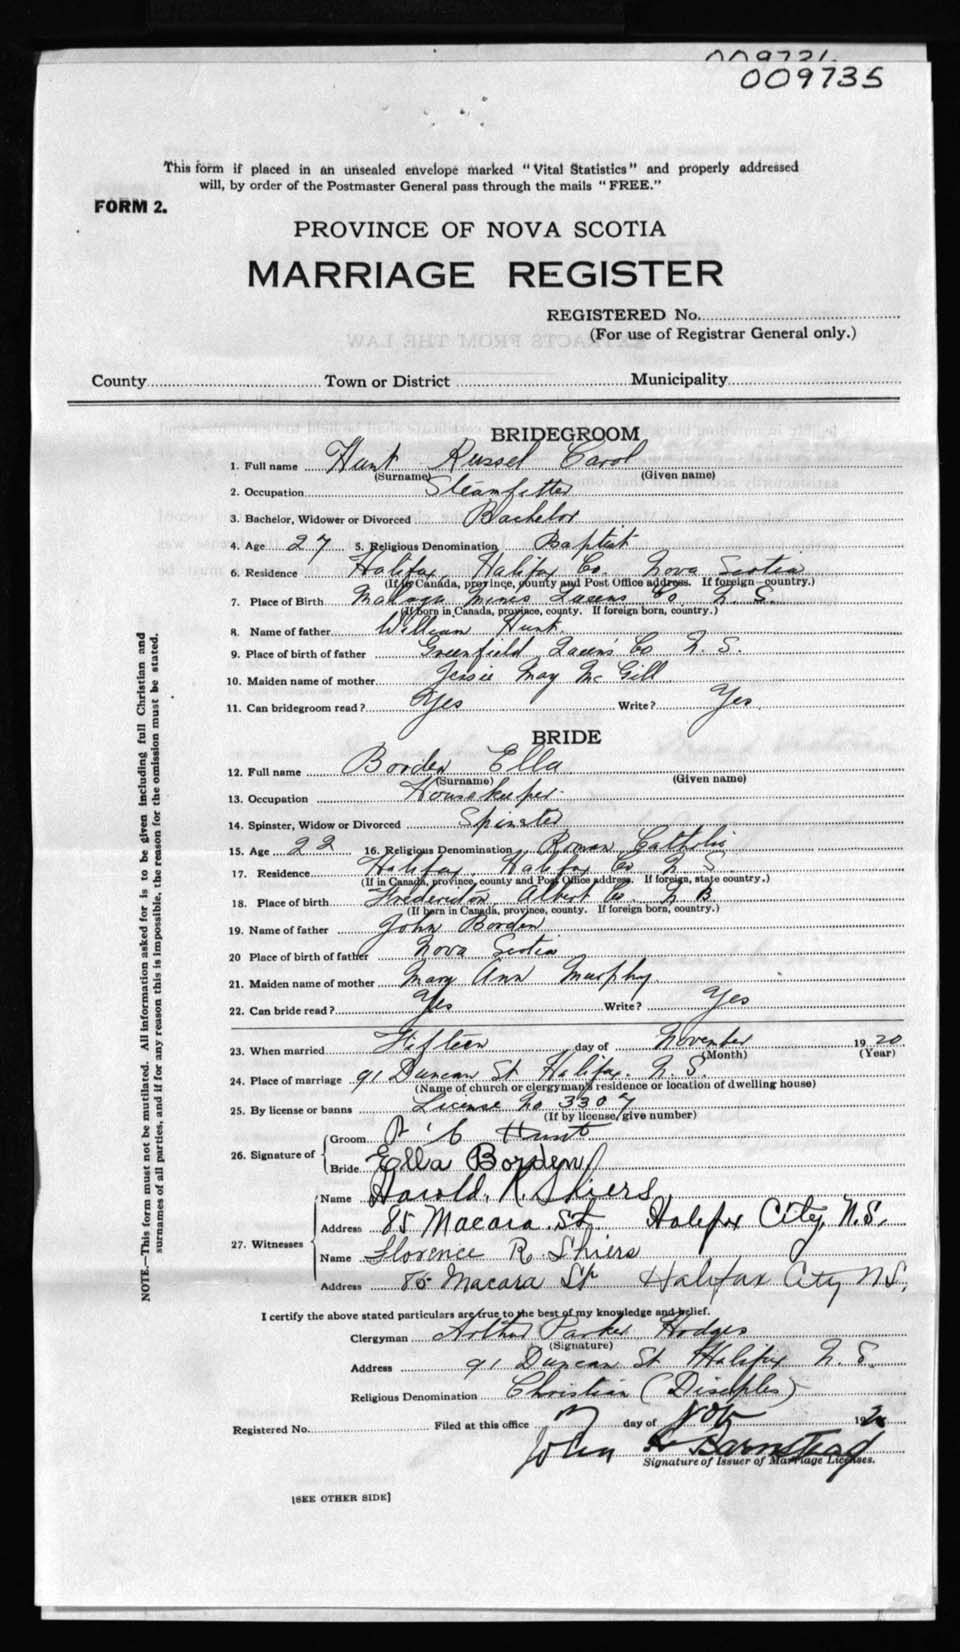 009721
009735
This form if placed in an unsealed envelope marked "Vital Statistics" and properly addressed
will, by order of the Postmaster General pass through the mails "FREE."
FORM 2.
PROVINCE OF NOVA SCOTIA
MARRIAGE REGISTER
REGISTERED No.
(For use of Registrar General only.)
County Town or District Municipality
BRIDEGROOM
1. Full name Hunt Russel Carol
(Surname) (Given name)
2. Occupation Steamfitter
3. Bachelor, Widower or Divorced Bachelor
4. Age 27 5. Religious Denomination Baptist
6. Residence Halifax, Halifax Co. Nova Scotia
(If in Canada, province, county and Post Office address. If foreign—country.)
7. Place of Birth Malaga Mines Queens Co. N. S.
(If born in Canada, province, county. If foreign born, country.)
8. Name of father William Hunt.
9. Place of birth of father Greenfield Queen's Co N. S.
10. Maiden name of mother Jessie May McGill
11. Can bridegroom read? Yes Write? Yes
BRIDE
12. Full name Borden Ella
(Surname) (Given name)
13. Occupation Housekeeper.
14. Spinster, Widow or Divorced Spinster
15. Age 22 16. Religious Denomination Roman Catholic
17. Residence Halifax, Halifax Co N. S.
(If in Canada, province, county and Post Office address. If foreign, state country.)
18. Place of birth Fredericton Albert Co. N B
(If born in Canada, province, county. If foreign born, country.)
19. Name of father John Borden
20 Place of birth of father Nova Scotia
21. Maiden name of mother Mary Ann Murphy
22. Can bride read? Yes Write? Yes
23. When married Fifteen day of November 1920
(Month) (Year)
24. Place of marriage 91 Duncan St Halifax. N. S.
(Name of church or clergyman's residence or location of dwelling house)
25. By license or banns License No 3307
(If by license, give number)
26. Signature of Groom R C Hunt
Bride Ella Borden
27. Witnesses Name Harold. R. Shiers
Address 85 Macara. St. Halifax City. N.S.
Name Florence R. Shiers
Address 85 Macara St Halifax City N.S.
I certify the above stated particulars are true to the best of my knowledge and belief.
Clergyman Arthur Parker Hodges
(Signature)
Address 91 Duncan St Halifax N. S.
Religious Denomination Christian (Disciples)
Registered No. Filed at this office 17 day of Nov 192
John Barnstead
Signature of Issuer of Marriage Licenses.
[SEE OTHER SIDE]
NOTE.—This form must not be mutilated. All information asked for is to be given including full Christian and
surnames of all parties, and if for any reason this is impossible, the reason for the omission must be stated.